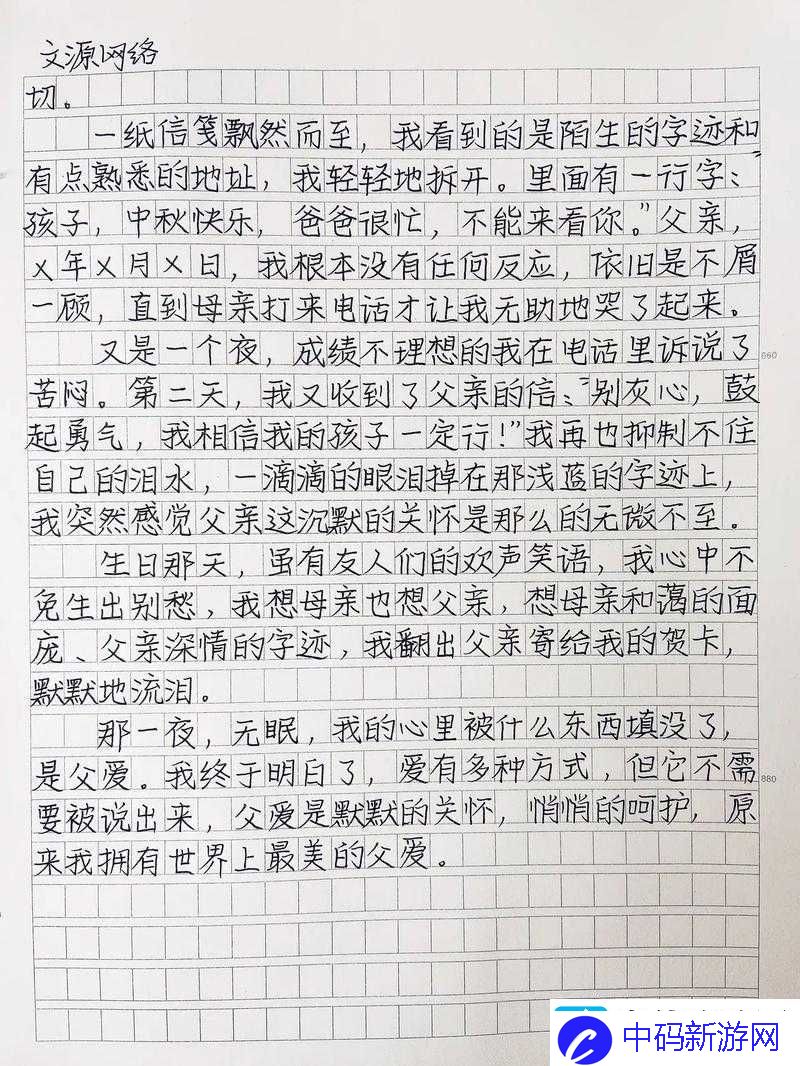 文源网络
切。
一纸信笺飘然而至，我看到的是陌生的字迹和
有点熟悉的地址，我轻轻地拆开。里面有一行字："
孩子，中秋快乐，爸爸很忙，不能来看你。"父亲，
X年X月X日，我根本没有任何反应，依旧是不屑
一顾，直到母亲打来电话才让我无助地哭了起来。
又是一个夜，成绩不理想的我在电话里诉说了
660
苦闷。第二天，我又收到了父亲的信："别灰心，鼓
起勇气，我相信我的孩子一定行！"我再也抑制不住
自己的泪水，一滴滴的眼泪掉在那浅蓝的字迹上，
我突然感觉父亲这沉默的关怀是那么的无微不至。
生日那天，虽有友人们的欢声笑语，我心中不
免生出别愁，我想母亲也想父亲，想母亲和蔼的面
庞、父亲深情的字迹，我翻出父亲寄给我的贺卡，
默默地流泪。
那一夜，无眠，我的心里被什么东西填没了，
是父爱。我终于明白了，爱有多种方式，但它不需
880
要被说出来，父爱是默默的关怀，悄悄的呵护，原
来我拥有世界上最美的父爱。
中码新游网